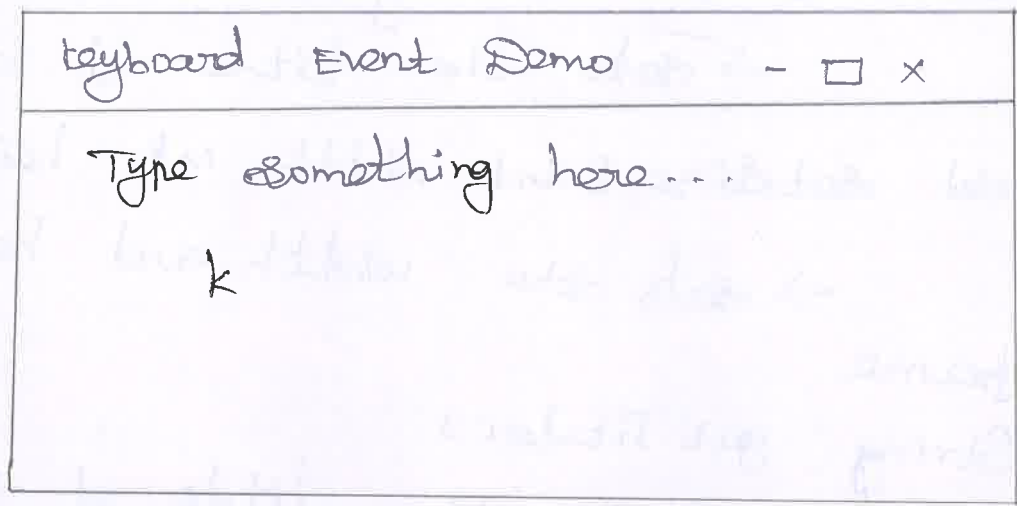 keyboard Event Demo - □ ×
Type something here...
k